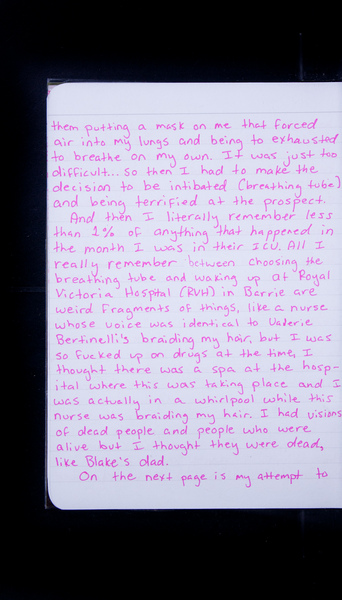 them putting a mask on me that forced
air into my lungs and being to exhausted
to breathe on my own. It was just too
difficult... so then I had to make the
decision to be intibated (breathing tube)
and being terrified at the prospect.
And then I literally remember less
than 2% of anything that happened in
the month I was in their ICU. All I
really remember between choosing the
breathing tube and waking up at Royal
Victoria Hospital (RVH) in Barrie are
weird fragments of things, like a nurse
whose voice was identical to Valerie
Bertinelli's braiding my hair, but I was
so fucked up on drugs at the time, I
thought there was a spa at the hosp-
ital where this was taking place and I
was actually in a whirlpool while this
nurse was braiding my hair. I had visions
of dead people and people who were
alive but I thought they were dead,
like Blake's dad.
On the next page is my attempt to